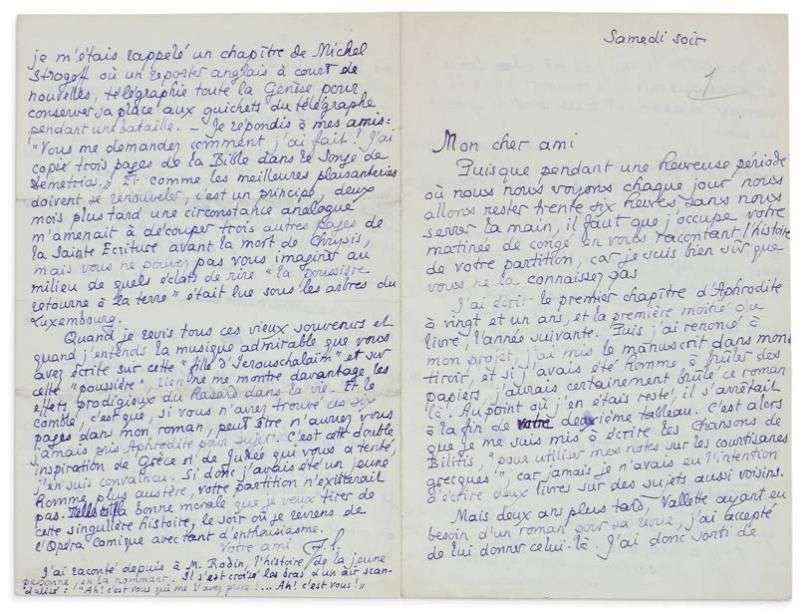 Samedi soir
1
Mon cher ami
Puisque pendant une heureuse période
où nous nous voyons chaque jour nous
allons rester trente six heures sans nous
serrer la main, il faut que j'occupe votre
matinée de congé en vous racontant l'histoire
de votre partition, car je suis bien sûr que
vous ne la connaissez pas
J'ai écrit le premier chapître d'Aphrodite
à vingt et un ans, et la première moitié du
livre l'année suivante. Puis j'ai renoncé à
mon projet, j'ai mis le manuscrit dans mon
tiroir, et si j'avais été homme à brûler des
papiers, j'aurais certainement brûlé ce roman
là. Au point où j'en étais resté, il s'arrêtait
à la fin de votre deuxième tableau. C'est alors
que je me suis mis à écrire les Chansons de
Bilitis, "pour utiliser mes notes sur les courtisanes
grecques", car jamais je n'avais eu l'intention
d'écrire deux livres sur des sujets aussi voisins.
Mais deux ans plus tard, Vallette ayant eu
besoin d'un roman pour sa revue, j'ai accepté
de lui donner celui-là J'ai donc sorti de
je m'étais rappelé un chapître de Michel
Strogoff où un reporter anglais à court de
nouvelles, télégraphie toute la Genèse pour
conserver sa place aux guichets du télégraphe
pendant une bataille. – Je répondis à mes amis:
"Vous me demandez comment j'ai fait! J'ai
copié trois pages de la Bible dans le Songe de
Démétrios." Et comme les meilleures plaisanteries
doivent se renouveler, c'est un principe, deux
mois plus tard une circonstance analogue
m'amenait à découper trois autres pages de
la Sainte Ecriture avant la mort de Chrysis,
mais vous ne pouvez pas vous imaginer au
milieu de quels éclats de rire "la poussière
retourne à la terre" était lue sous les arbres du
Luxembourg.
Quand je revis tous ces vieux souvenirs et
quand j'entends la musique admirable que vous
avez écrite sur cette "fille d'Ierouschalaïm" et sur
cette "poussière", rien ne me montre davantage les
effets prodigieux du hasard dans la vie. Et le
comble, c'est que, si vous n'aviez trouvé ces six
pages dans mon roman, peut être n'auriez vous
jamais pris Aphrodite pour sujet. C'est cette double
inspiration de Grèce et de Judée qui vous a tenté,
j'en suis convaincu. Si donc j'avais été un jeune
homme plus austère, votre partition n'existerait
pas. Telle est la bonne morale que je veux tirer de
cette singulière histoire, le soir où je reviens de
l'Opéra Comique avec tant d'enthousiasme.
Votre ami
J'ai raconté depuis à M. Rodin, l'histoire de la jeune
personne, en la nommant. Il s'est croisé les bras d'un air scan-
dalisé: "Ah! c'est vous qui me l'avez prise!... Ah! c'est vous!"